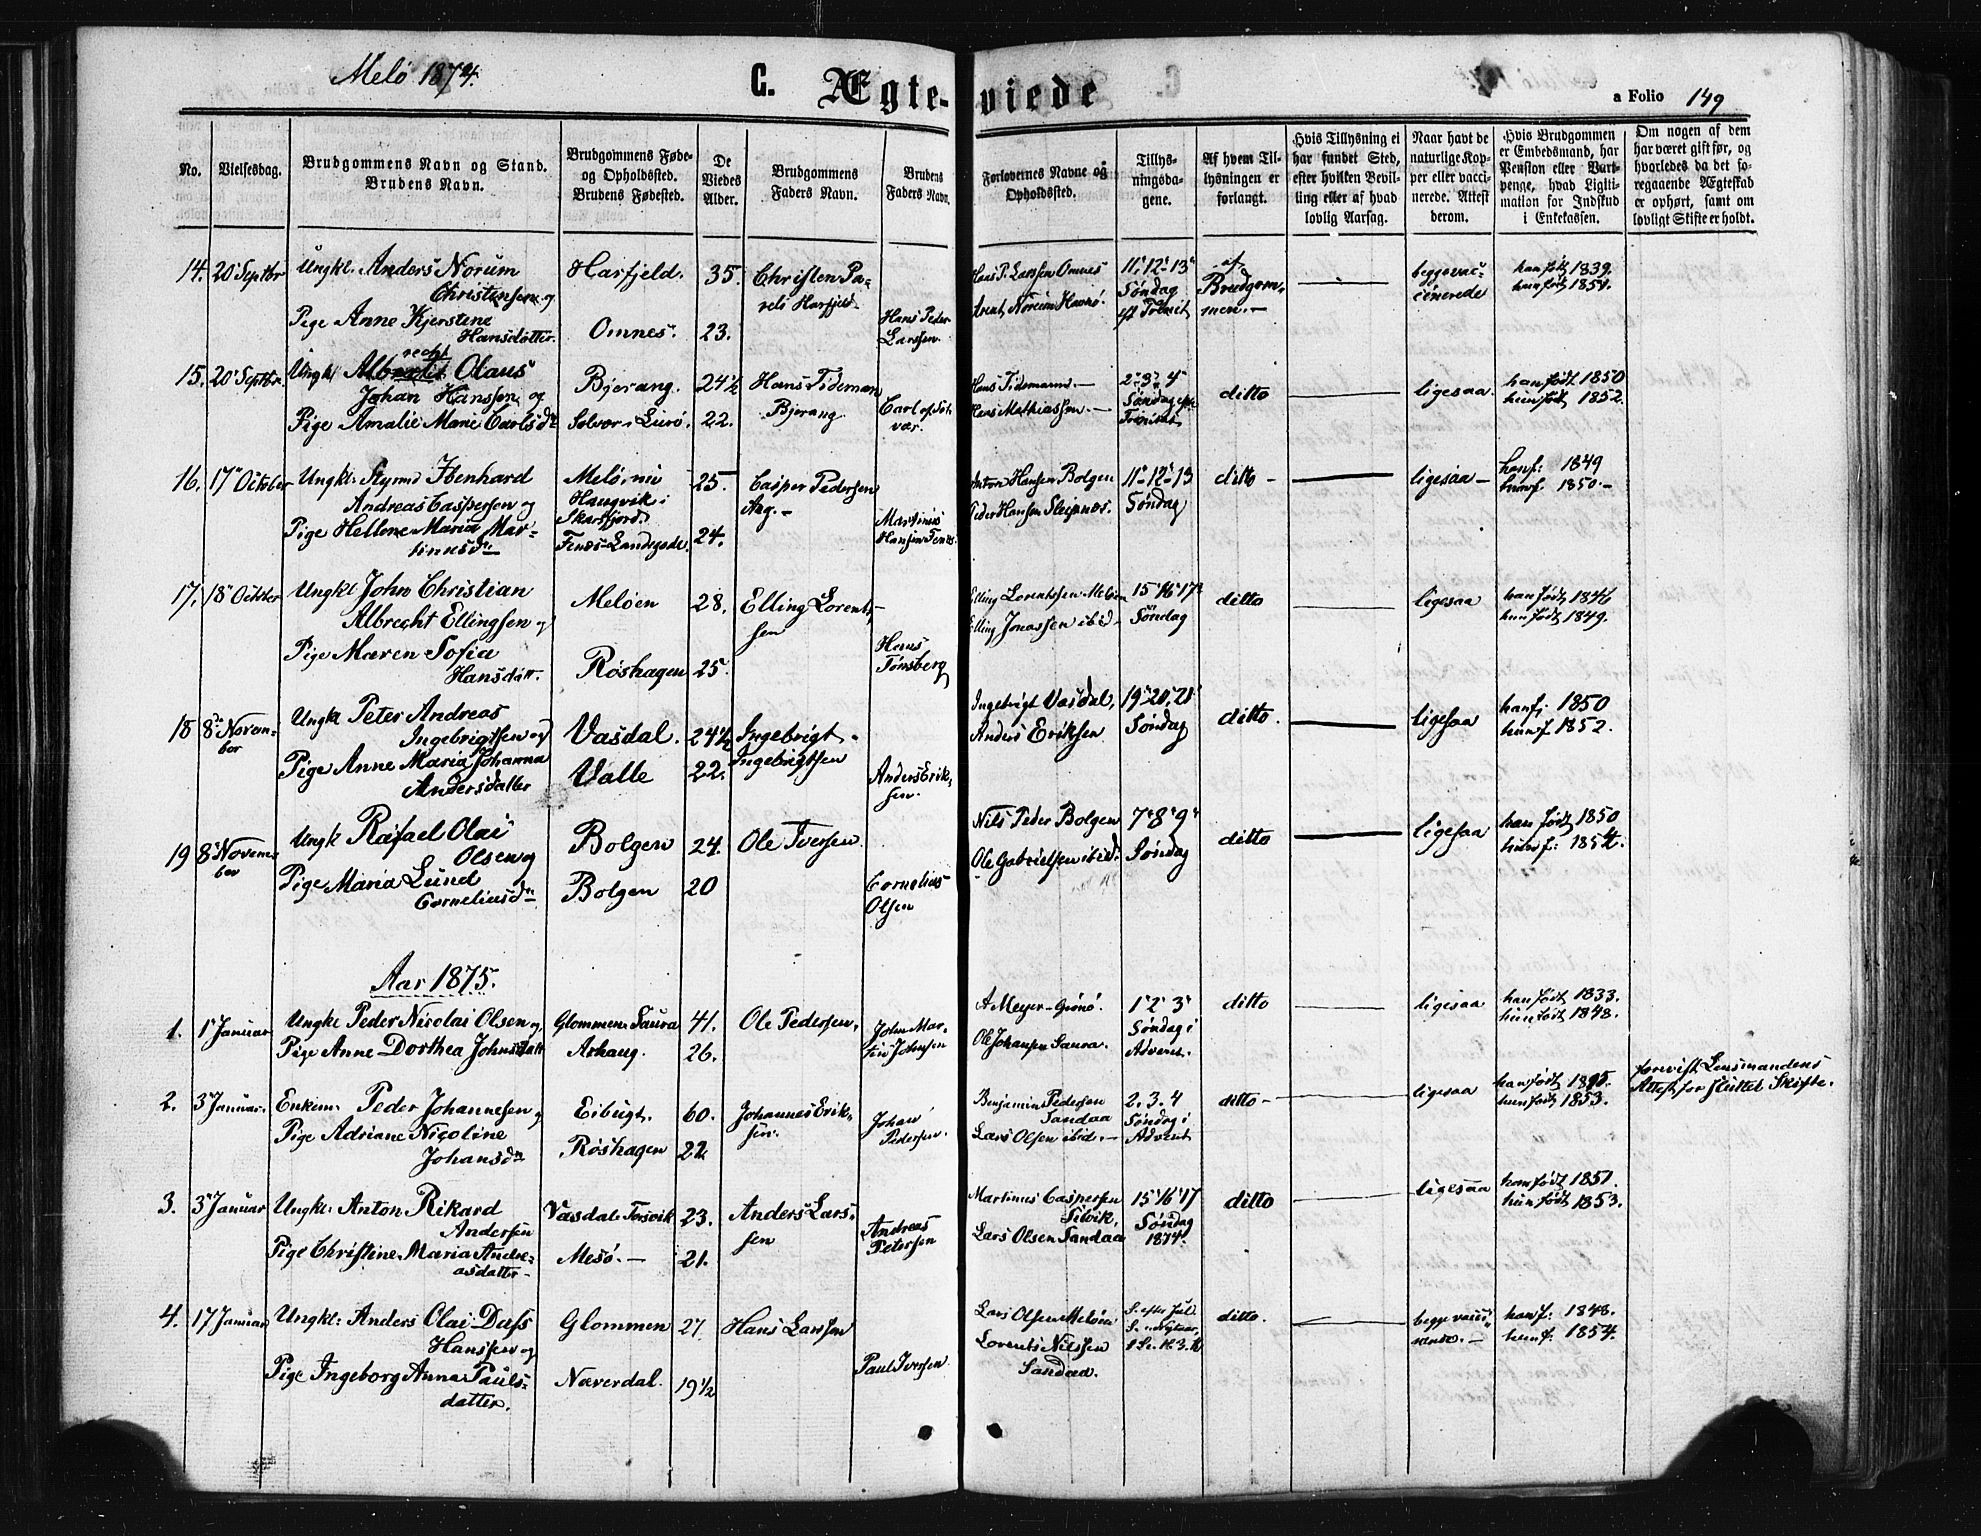 Melö 1874.
C. Ægte-viede
a Folio 149
No.
Vielsesdag.
Brudgommens Navn og Stand.
Brudens Navn.
Brudgommens Føde-
og Opholdssted.
Brudens Fødested.
De
Viedes
Alder.
Brudgommens
Faders Navn.
Brudens
Faders Navn.
Forlovernes Navne og
Opholdssted.
Tillys-
ningsda-
gene.
Af hvem Til-
lysningen er
forlangt.
Hvis Tillysning ei
har fundet Sted,
efter hvilken Bevil-
ling eller af hvad
lovlig Aarsag.
Naar havt de
naturlige Kop-
per eller vacci-
nerede. Attest
derom.
Hvis Brudgommen
er Embedsmand, har
Pension eller Vart-
penge, hvad Ligiti-
mation for Indskud
i Enkekassen.
Om nogen af dem
har været gift før, og
hvorledes da det fo-
regaaende Ægteskab
er ophørt, samt om
lovligt Skifte er holdt.
14. 20 Septbr Ungkl. Anders Norum
Christensen og
Pige Anne Kjerstine
Hansdatter.
Harfjeld. 35.
Omnes. 23.
Christen Pa-
vels Harfjeld
Hans Peder
Larssen
Hans P. Larssen Omnes
Arent Noreim Havnö.
11' 12' 13'
Söndag
eft Trinit
af
Brudgom-
men.
begge vac-
cinerede
han född 1839.
hun född 1851.
15. 20 Septbr. Ungkl Albertis Olaus
Johan Hanssen og
Pige Amalie Marie Carlsd
Bjerang. 24½
Selvær i Lurö. 22.
Hans Tideman
Bjerang
Carl
vær.
Hans Tidemann
Hans Mathiassen
2' 3' 4'
Söndag eft
Trinitat
ditto
ligesaa
han född 1850
hun född 1852.
16. 17 October Ungkl.
Andreas Caspersen og
Pige Hellene Maria Mar-
tinusd
Melö, nu
Haugvik i
Skarsfjord. 25.
Fenes Landegode. 24.
Casper Pedersen
Aag.
Martinus
Hansen Fenes.
Anton Hansen Bolgen
Peder Hansen Sleipnes.
11' 12' 13
Söndag
ditto
ligesaa
han f: 1849
hun f. 1850.
17. 18 October Ungkl John Christian
Albrecht Ellingsen og
Pige Maren Sofia
Hansdatt.
Melöen 28.
Röshagen 25.
Elling Lorent-
sen
Hans
Tönsberg
Elling Lorentssen Melöen
Elling Jonassen ibid
15' 16' 17'
Söndag
ditto
ligesaa
han född 1846
hun född 1849.
18 8 Novem-
ber
Ungkl Peter Andreas
Ingebrigtsen og
Pige Anne Maria Johanna
Andersdatter
Vasdal. 24½
Valle 22.
Ingebrigt
Ingebrigtsen
Anders Erik-
sen.
Ingebrigt Vasdal,
Anders Eriksen
19' 20' 21'
Söndag
ditto.
ligesaa
han f. 1850
hun f. 1852.
19 8 Novem-
ber
Ungk Rafael Olai
Olsen og
Pige Maria Lund
Corneliusd
Bolgen 24.
Bolgen 20
Ole Iversen
Cornelius
Olsen
Nils Peder Bolgen
Ole Gabrielsen ibid.
7' 8' 9'
Söndag
ditto
ligesaa
han född 1850
hun f: 1854.
Aar 1875.
1. 1 Januar Ungkl Peder Nicolai Olsen og
Pige Anne Dorthea Johnsdatt
Glommen Saura 41.
Arhaug. 26.
Ole Pedersen.
John Mar-
tin Johnsen
A Meyer Grönö.
Ole Johansen Saura.
1' 2' 3'
Söndag i
Advent.
ditto
ligesaa
han född 1833.
hun född 1848.
2. 3 Januar. Enkem. Peder Johannesen og
Pige Adriane Nicoline
Johansd
Eibugt. 60.
Röshagen 22
Johannes Erik-
sen.
Johan
Pedersen.
Benjamin Pedersen
Sandaa
Lars Olsen ibid.
2. 3. 4
Söndag i
Advent
ditto
ligesaa
han född
hun född 1853.
forevist Lensmandens
Attest for sluttet Skifte.
3. 3 Januar Ungkl: Anton Rikard
Andersen
Pige Christine Maria Andre-
asdatter
Vasdal Torsvik 23.
Mesö. 21.
Anders Lars-
sen
Andreas
Petersen
Martinus Caspersen
Selvik.
Lars Olsen Sandaa
15' 16' 17
Söndag
1874.
ditto
ligesaa
han född 1851.
hun född 1853.
4. 17 Januar Ungkl: Anders Olai Dass
Hanssen og
Pige Ingeborg Anna Pauls-
datter.
Glommen 27
Næverdal. 19½
Hans Larssen
Paul Iversen
Lars Olsen Melöen
Lorents Nilssen
Sandaa.
S. efter Jul
S. Nytaar,
ditto.
begge vacci-
nerede.
han f: 1848.
hun f: 1854.